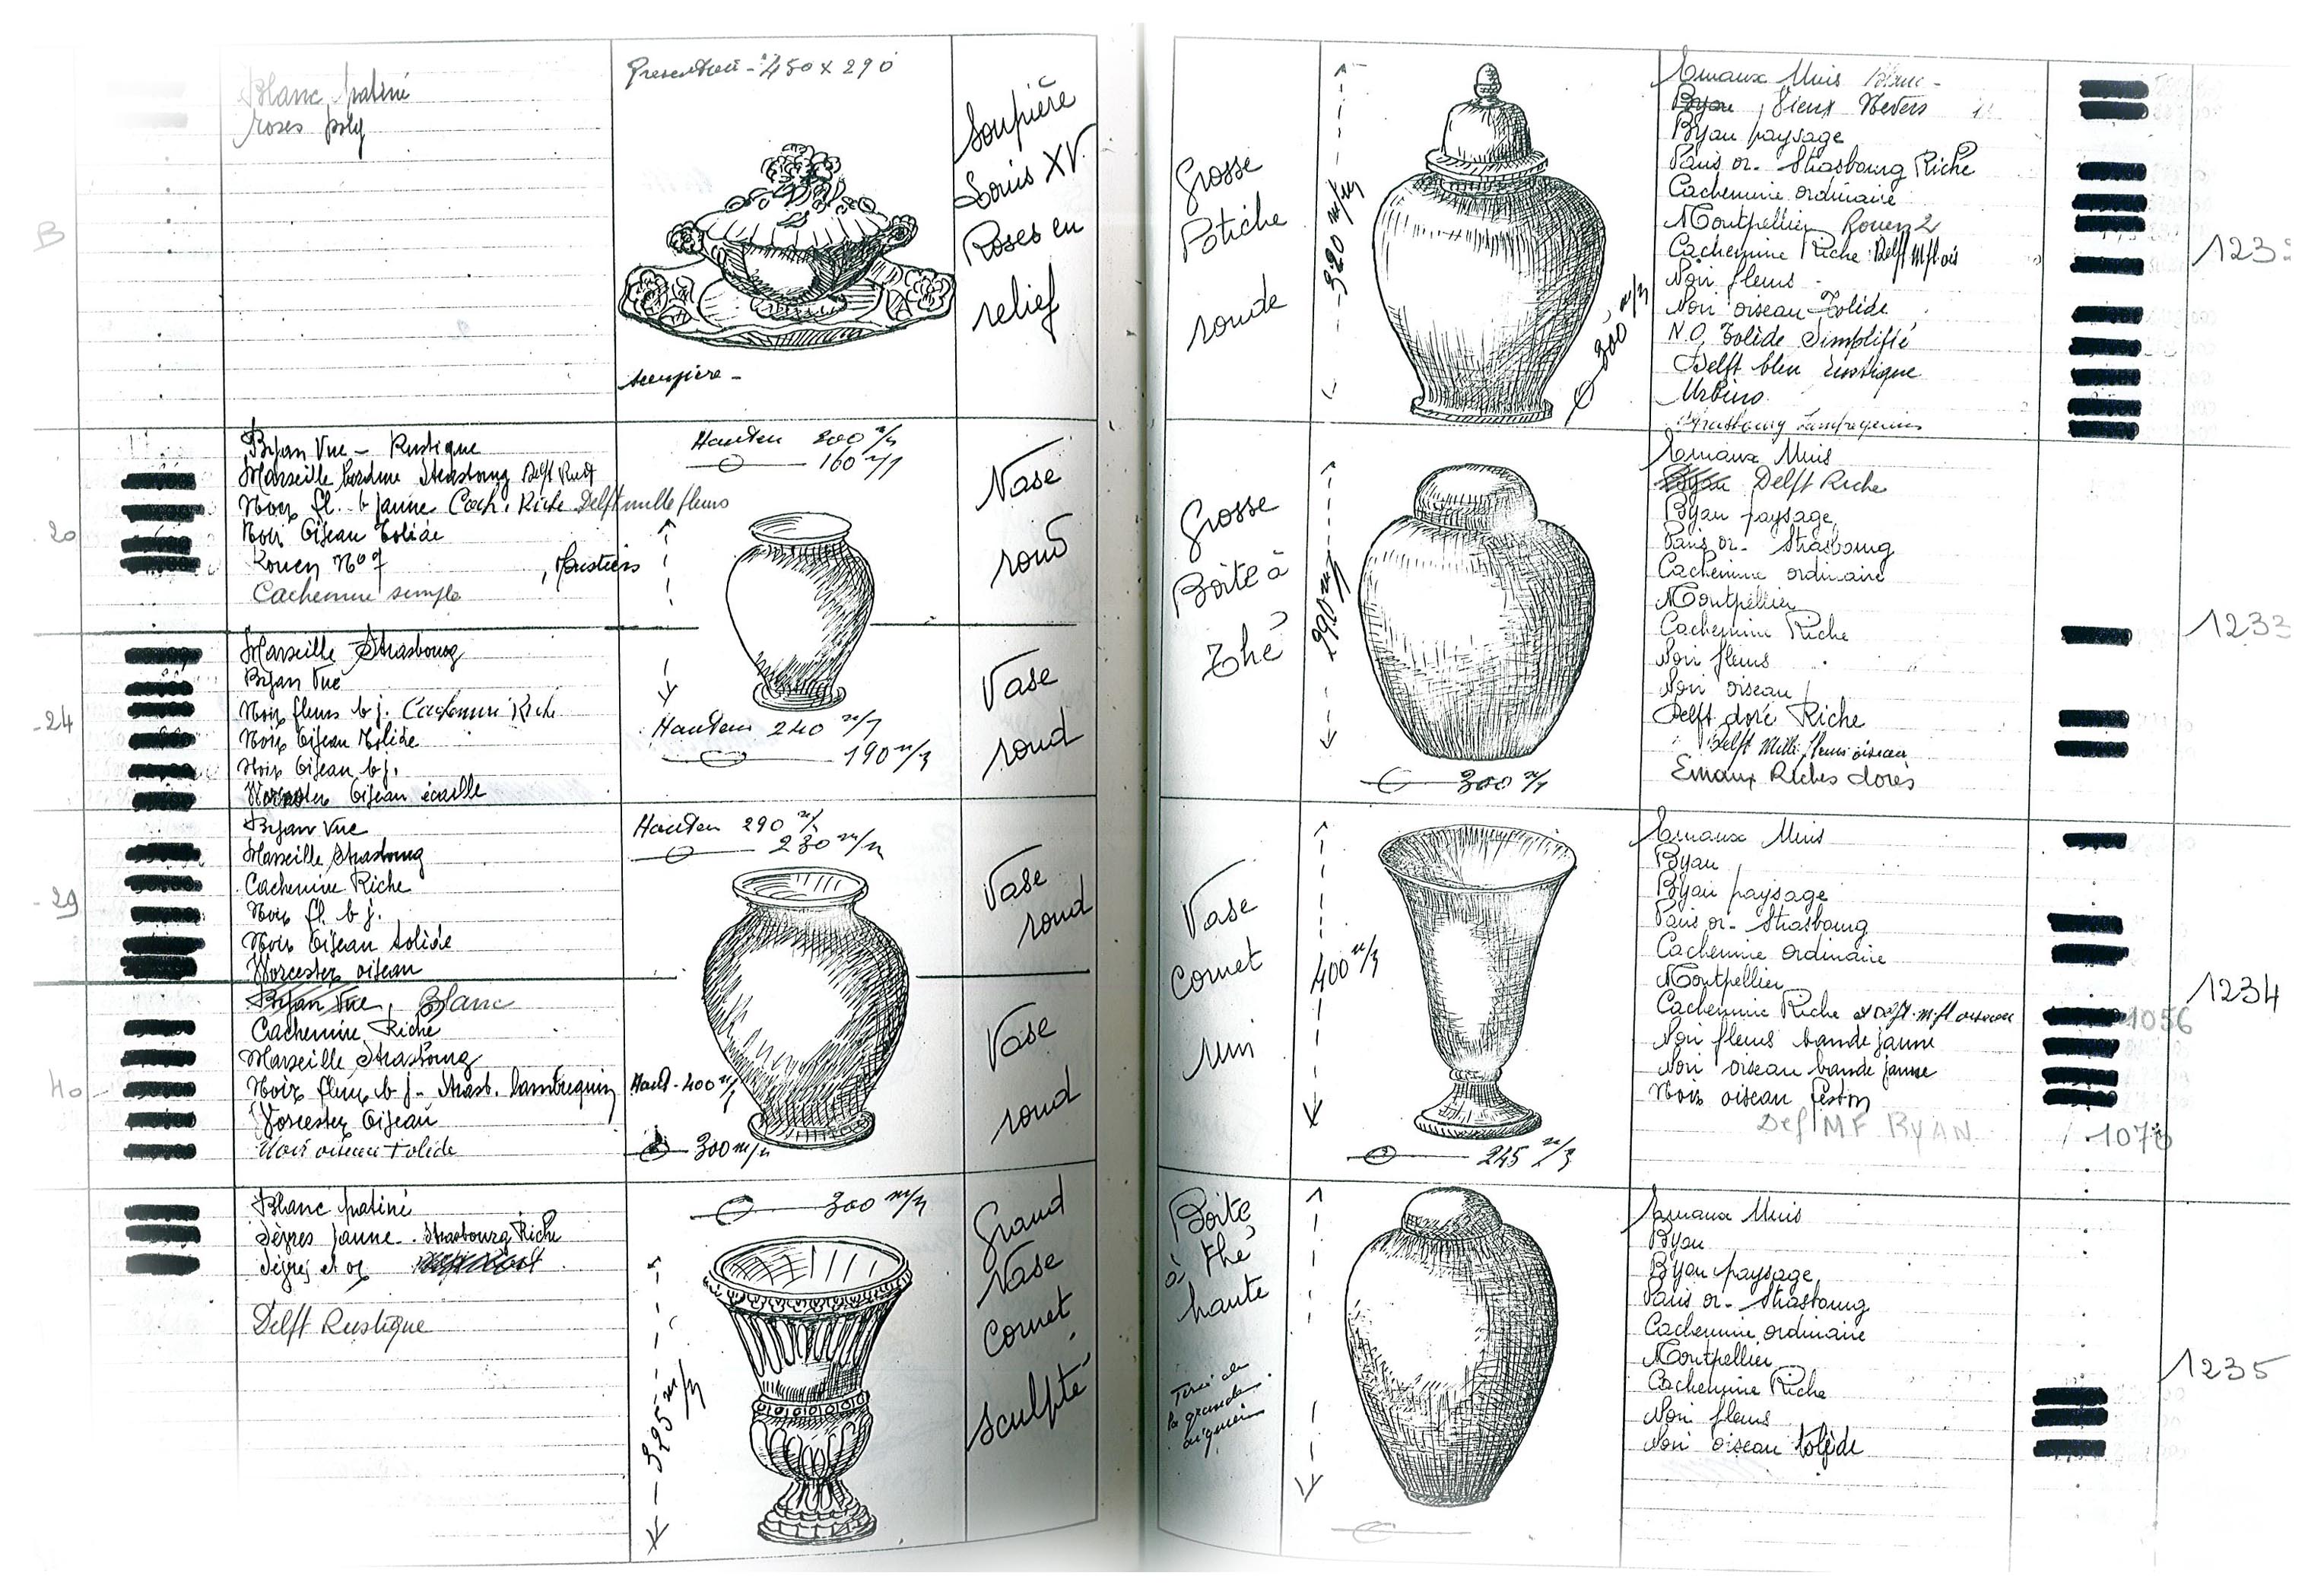 B
Blanc patiné
roses poly
Presentoir - 450 x 290
soupière -
Soupière
Louis XV
Roses en
relief
20
Byan Vue - Rustique
Marseille bordure Strasbourg Delft Rust
Noir fl. b jaune Cach. Riche Delft mille fleurs
Noir Oiseau Tolède
Rouen N° 7 , Moustiers
Cachemire simple
Hauteur 200 m/m
160 m/m
Vase
rond
24
Marseille Strasbourg
Byan Vue
Noir fleurs b j. Cachemire Riche
Noir Oiseau Tolède
Noir Oiseau b j.
Worcester Oiseau écaille
Hauteur 240 m/m
190 m/m
Vase
rond
29
Byan Vue
Marseille Strasbourg
Cachemire Riche
Noir fl. b j.
Noir Oiseau Tolède
Worcester oiseau
Hauteur 290 m/m
230 m/m
Vase
rond
40
Byan Vue, Blanc
Cachemire Riche
Marseille Strasbourg
Noir fleurs b j. Strasb. lambrequin
Worcester Oiseau
Noir oiseau Tolède
Haut - 400 m/m
300 m/m
Vase
rond
Blanc patiné
Sèvres jaune - Strasbourg Riche
Sèvres et or
Delft Rustique
300 m/m
325 m/m
Grand
Vase
Cornet
sculpté
Grosse
Potiche
ronde
520 m/m
300 m/m
Emaux Unis Blanc -
Byan, Vieux Nevers
Byan paysage
Paris or - Strasbourg Riche
Cachemire ordinaire
Montpellier Rouen 2
Cachemire Riche Delft M fl ois
Noir fleurs
Noir oiseau Tolède
N.O. Tolède Simplifié
Delft bleu rustique
Urbino
Strasbourg Lambrequins
123
Grosse
Boite à
Thé
290 m/m
300 m/m
Emaux Unis
Byan Delft Riche
Byan paysage
Paris or - Strasbourg
Cachemire ordinaire
Montpellier
Cachemire Riche
Noir fleurs
Noir oiseau
Delft doré Riche
Delft Mille fleurs oiseau
Emaux Riches dorés
1233
Vase
Cornet
uni
400 m/m
245 m/m
Emaux Unis
Byan
Byan paysage
Paris or - Strasbourg
Cachemire ordinaire
Montpellier
Cachemire Riche et Delft m. fl oiseau
Noir fleurs bande jaune
Noir oiseau bande jaune
Noir oiseau feston
Def MF BYAN
1056
1234
Boite
à thé
haute
la grande
Emaux Unis
Byan
Byan paysage
Paris or - Strasbourg
Cachemire ordinaire
Montpellier
Cachemire Riche
Noir fleurs
Noir oiseau tolède
1235